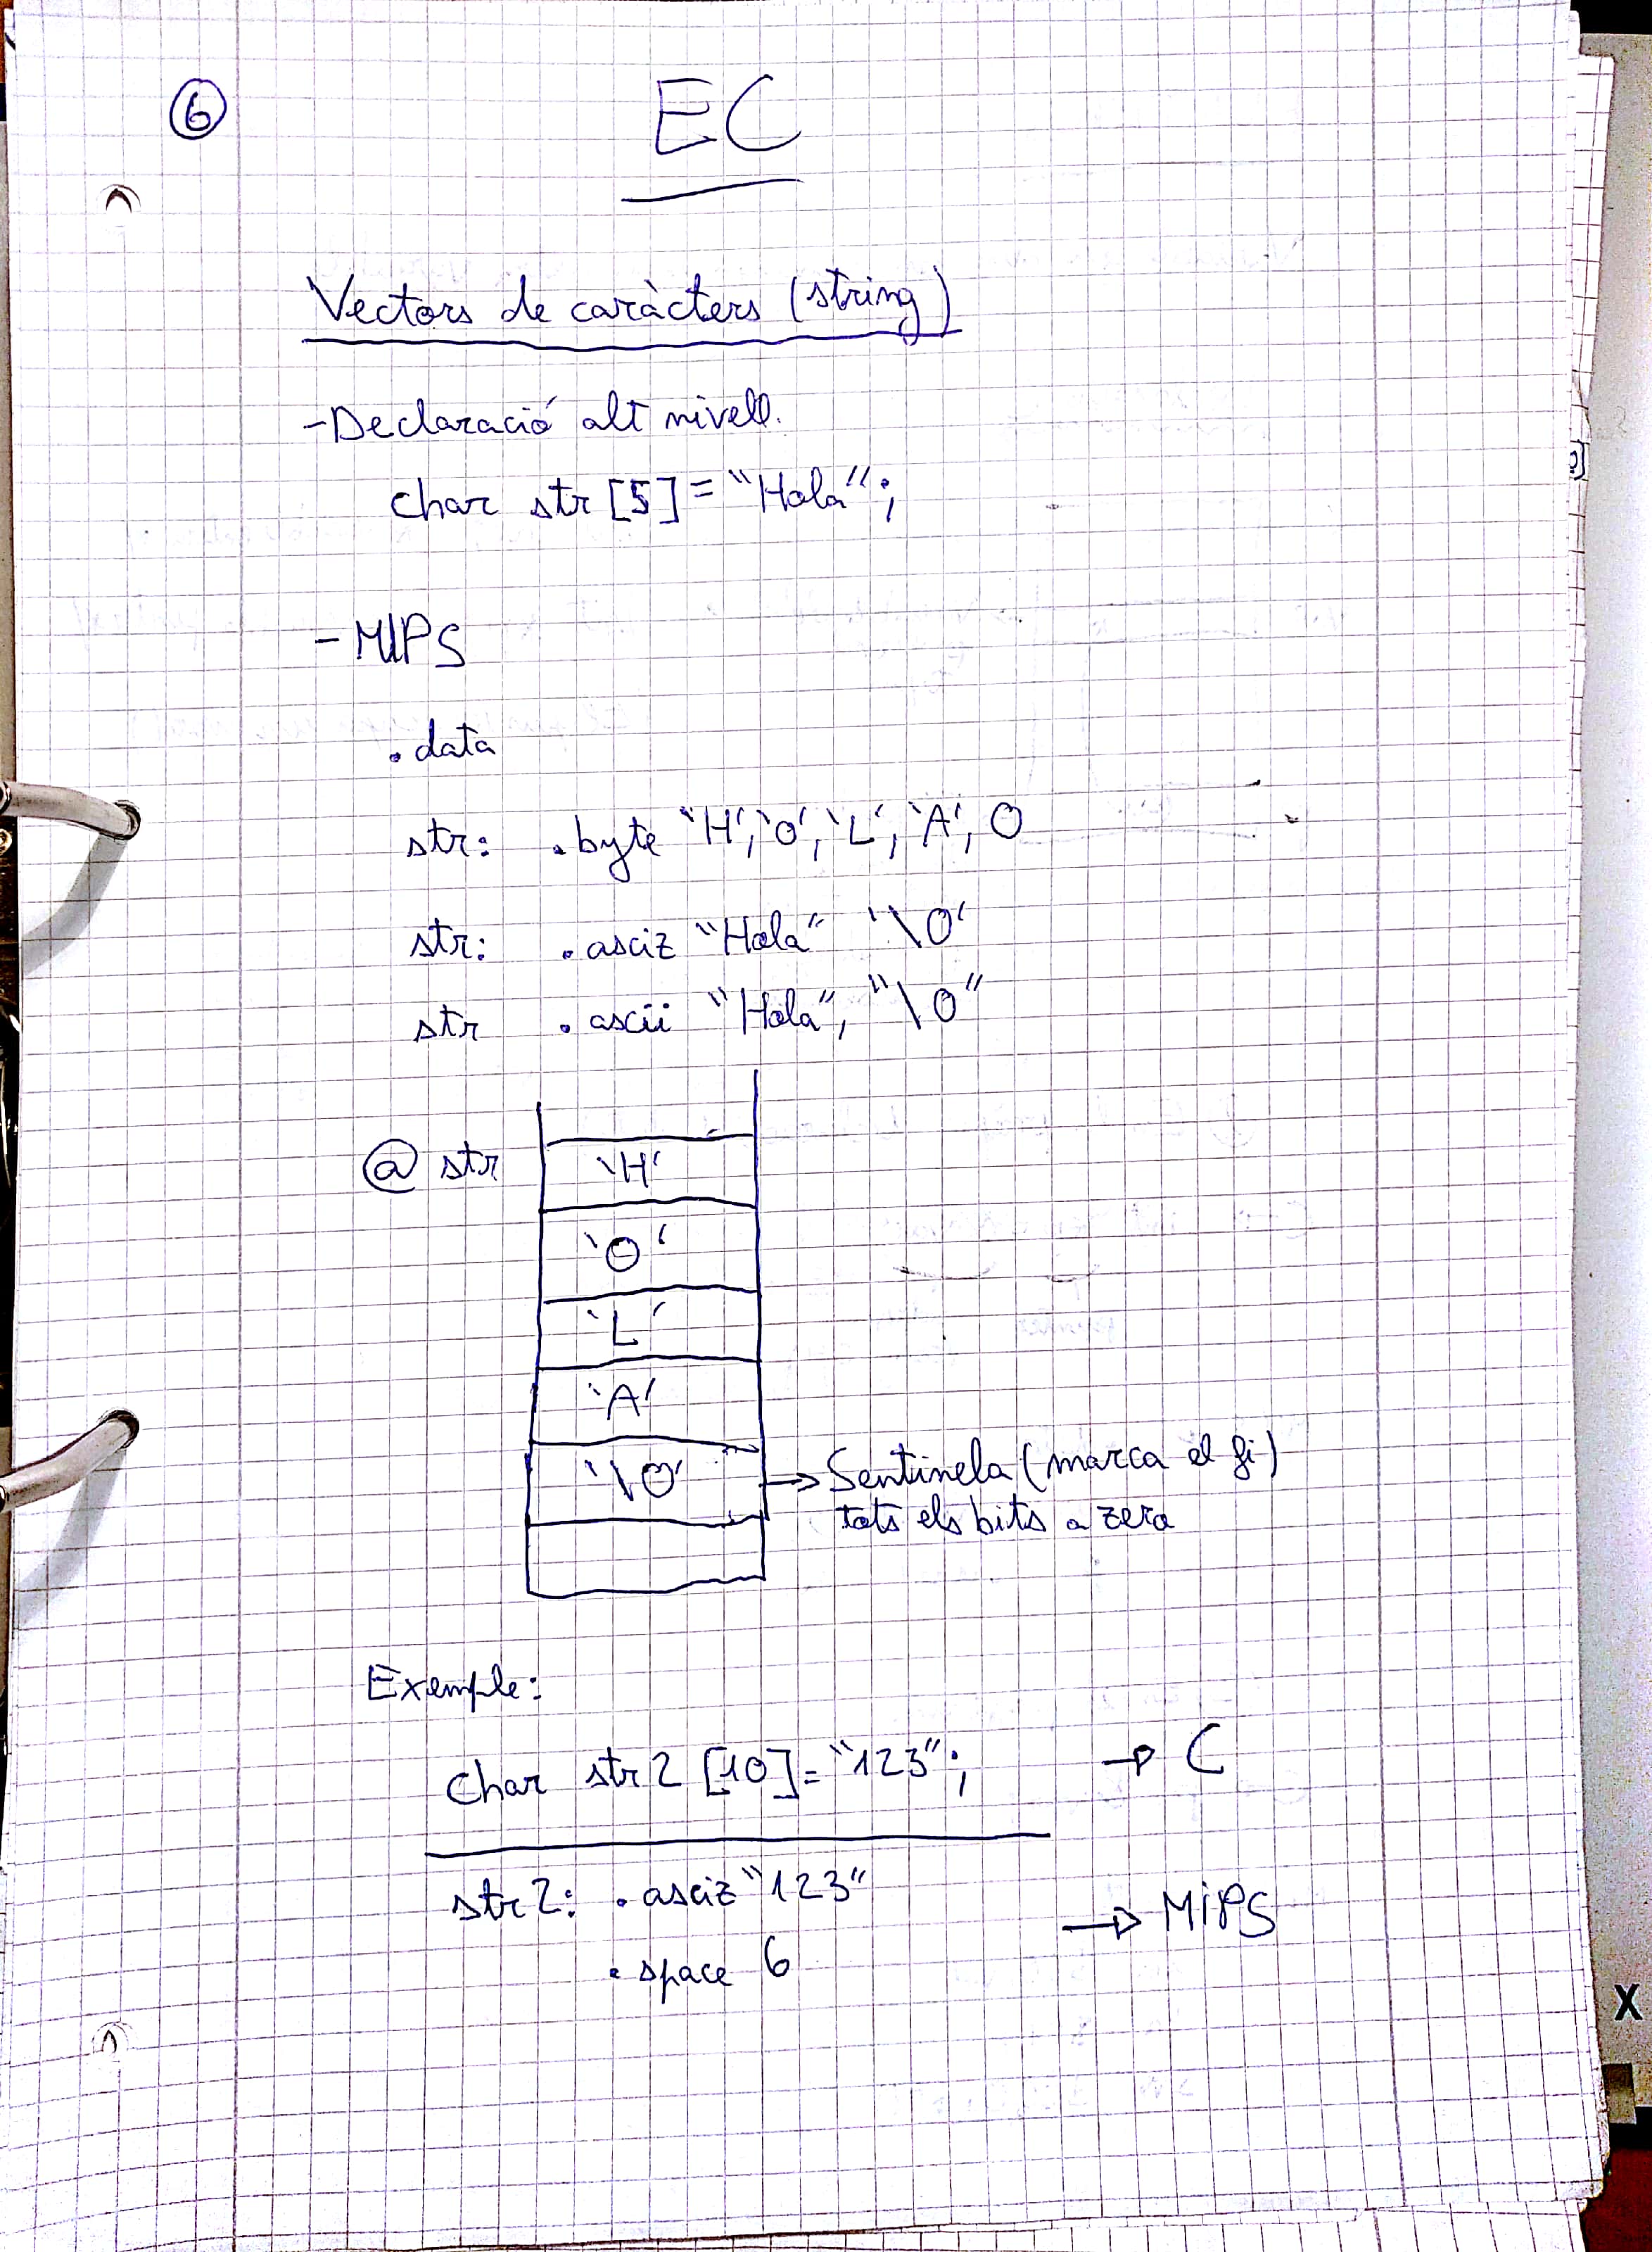 6
EC
Vectors de caràcters (string)
-Declaració alt nivell.
char str [5] = "Hola";
- MIPS
.data
str: .byte 'H', 'O', 'L', 'A', 0
str: .asciz "Hola" '\0'
str .ascii "Hola", "\0"
@ str 'H'
'O'
'L'
'A'
'\0' → Sentinela (marca el fi)
tots els bits a zero
Exemple:
char str2 [10] = "123"; → C
str2: .asciz "123"
→ MiPS
.space 6
X